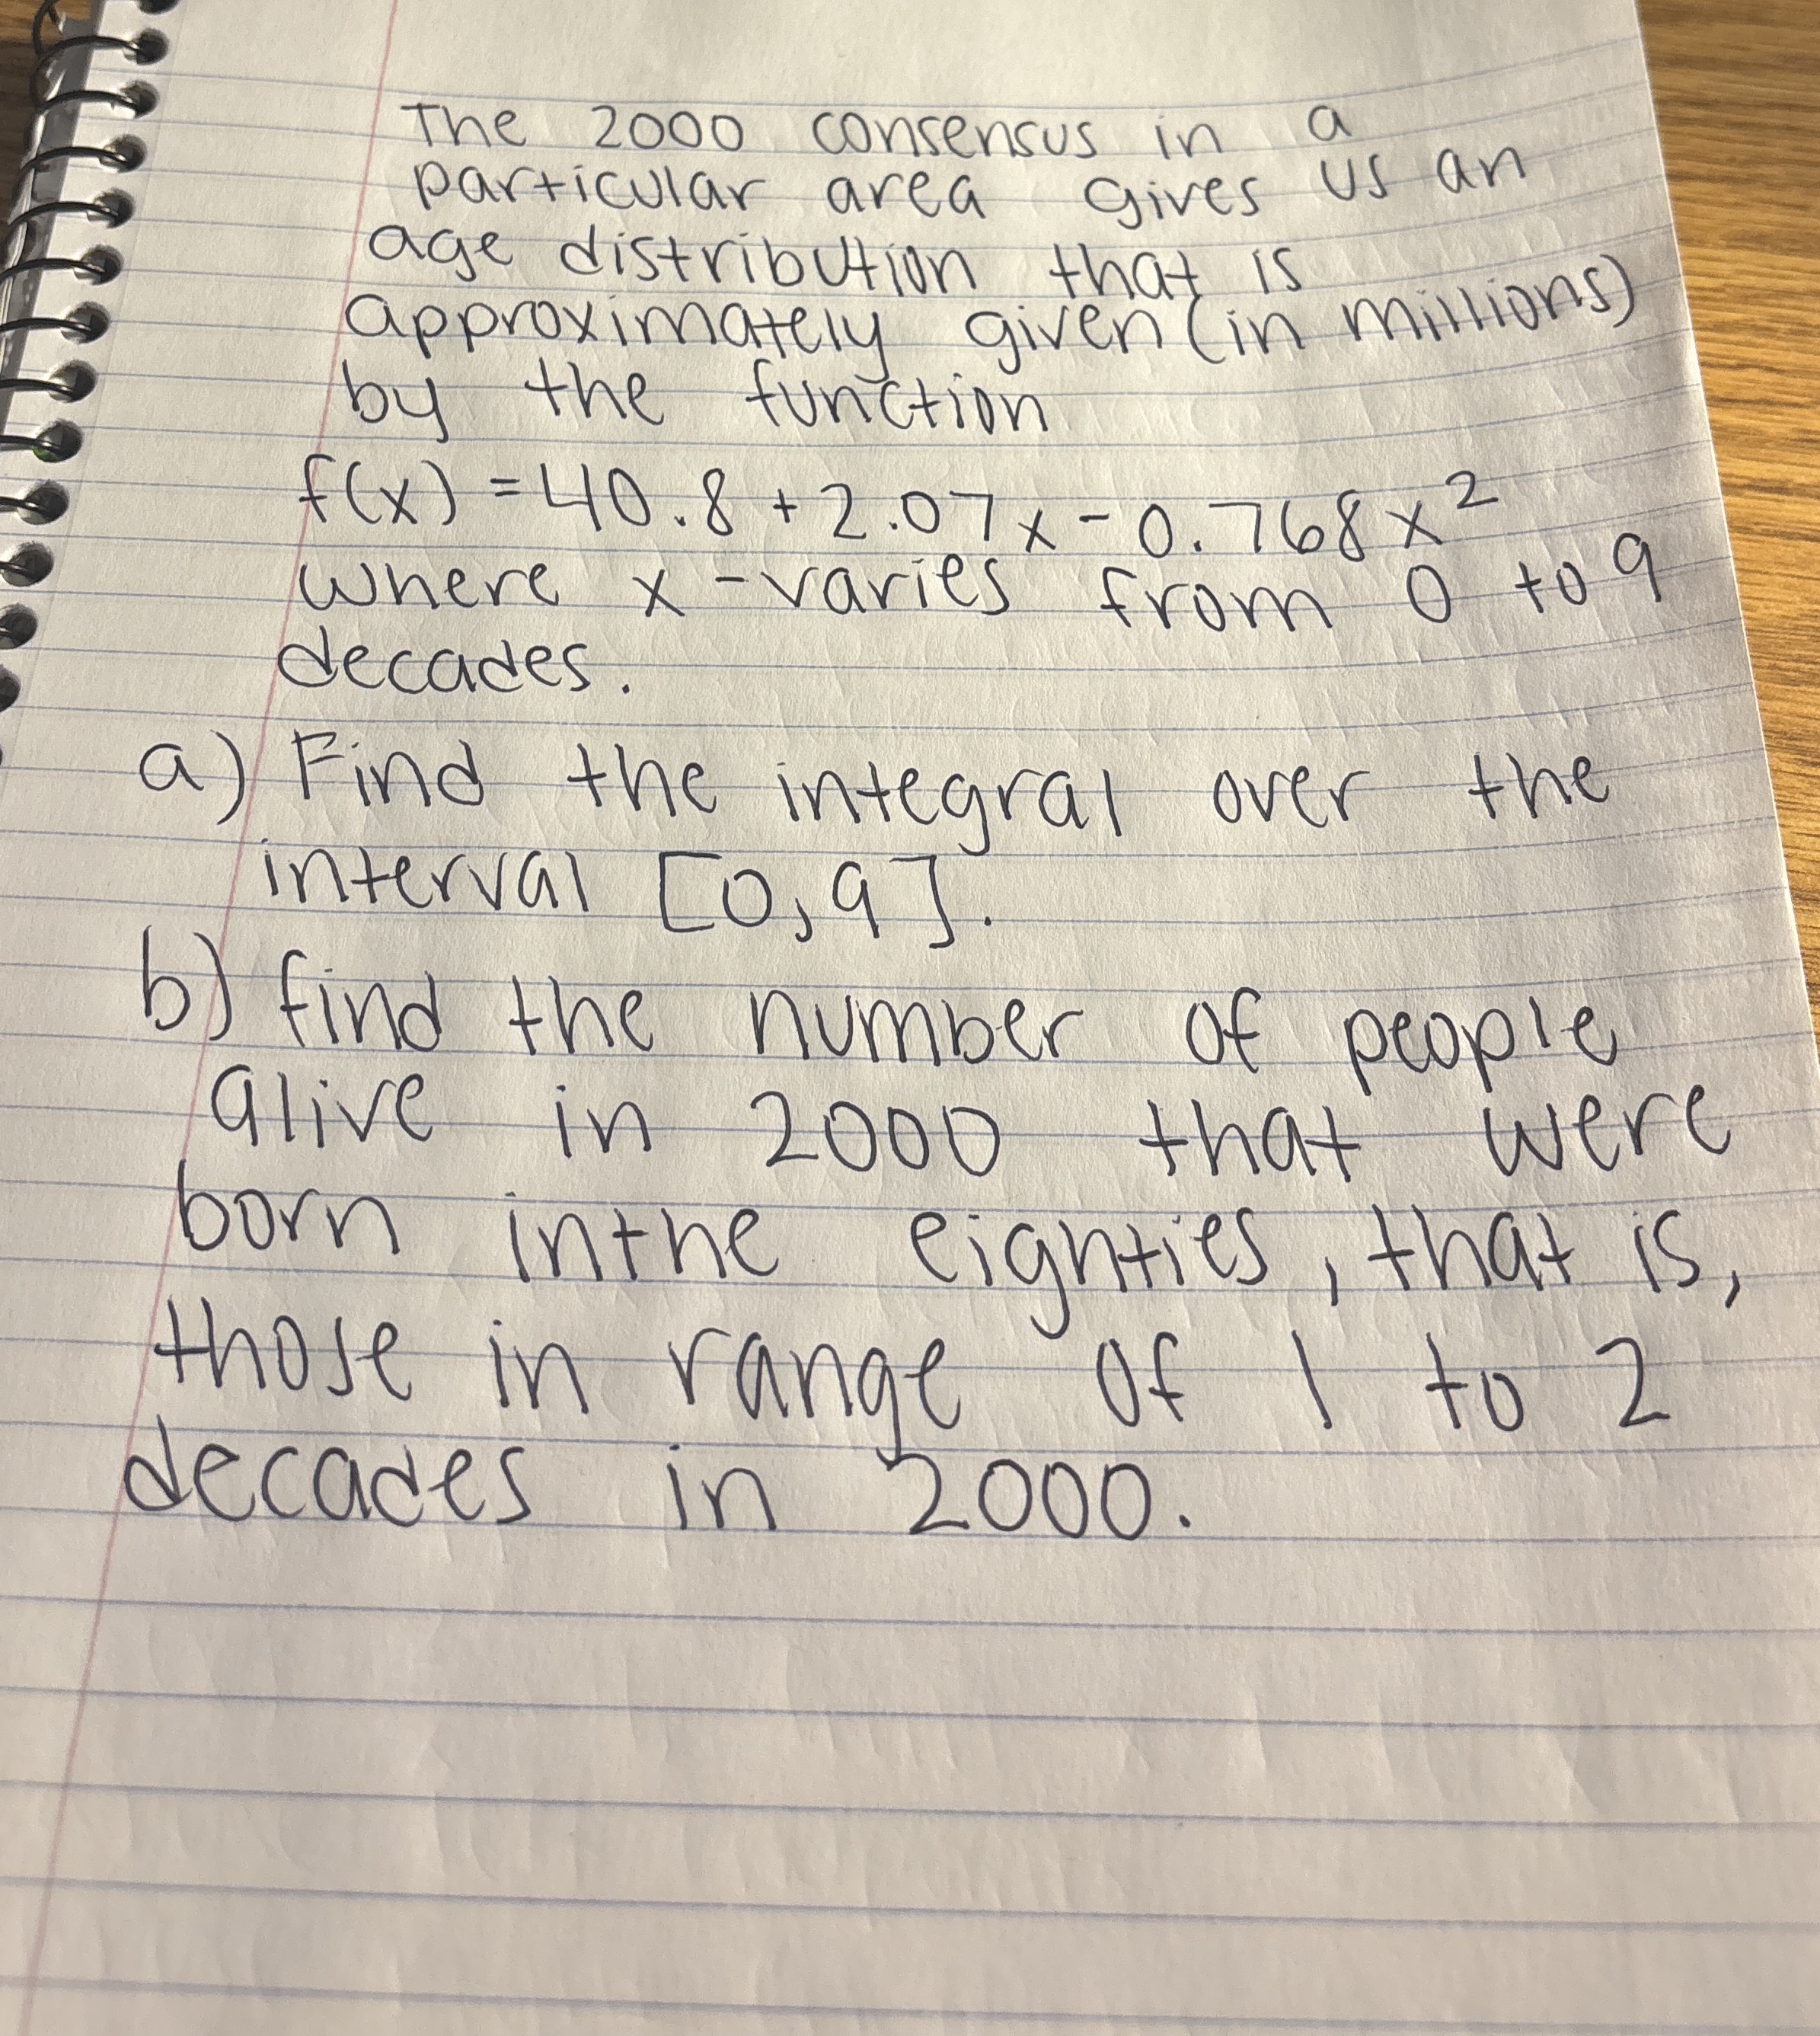 The 2000 consensus in a
particular area gives us an
age distribution that is
approximately given (in millions)
by the function
f(x) = 40.8 + 2.07x - 0.768x²
where x - varies from 0 to 9
decades.
a) Find the integral over the
interval [0,9].
b) find the number of people
alive in 2000 that were
born inthe eighties, that is,
those in range of 1 to 2
decades in 2000.